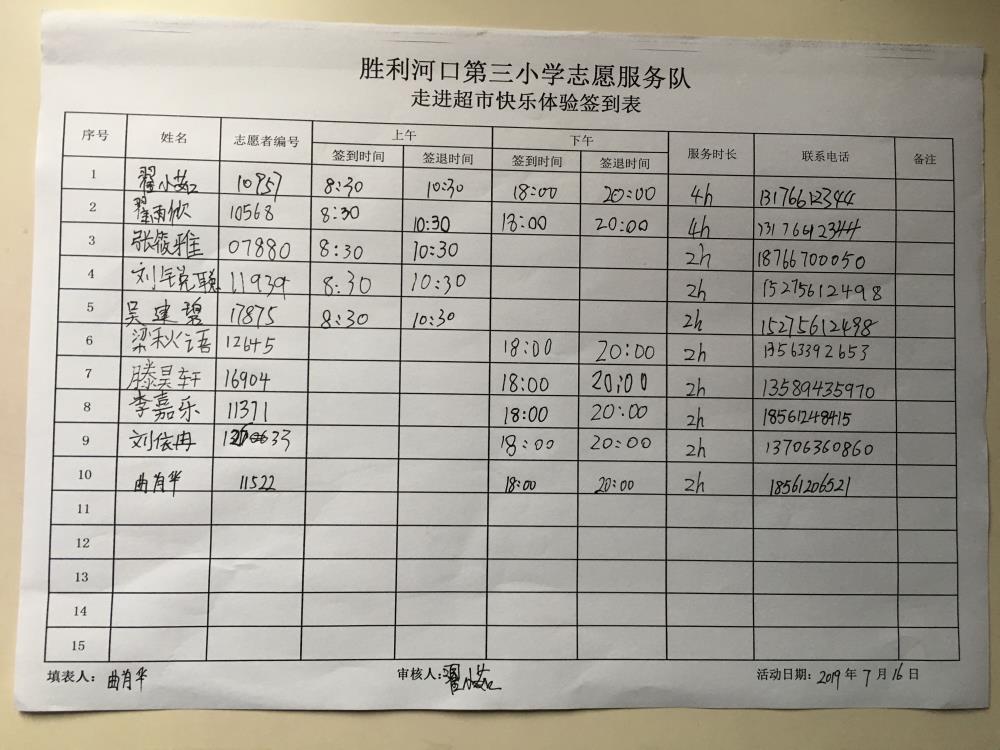 胜利河口第三小学志愿服务队
走进超市快乐体验签到表
序号 姓名 志愿者编号 上午 下午 服务时长 联系电话 备注
签到时间 签退时间 签到时间 签退时间
1 翟小茹 10957 8:30 10:30 18:00 20:00 4h 13176612344
2 翟雨欣 10568 8:30 10:30 18:00 20:00 4h 13176612344
3 张筱雅 07880 8:30 10:30 2h 18766700050
4 刘锐聪 11939 8:30 10:30 2h 15275612498
5 吴建碧 17875 8:30 10:30 2h 15275612498
6 梁秋语 12645 18:00 20:00 2h 13563392653
7 滕昊轩 16904 18:00 20:00 2h 13589435970
8 李嘉乐 11371 18:00 20:00 2h 18561248415
9 刘依冉 18:00 20:00 2h 13706360860
10 曲肖华 11522 18:00 20:00 2h 18561206521
11
12
13
14
15
填表人：曲肖华 审核人：翟小茹 活动日期：2019年7月16日